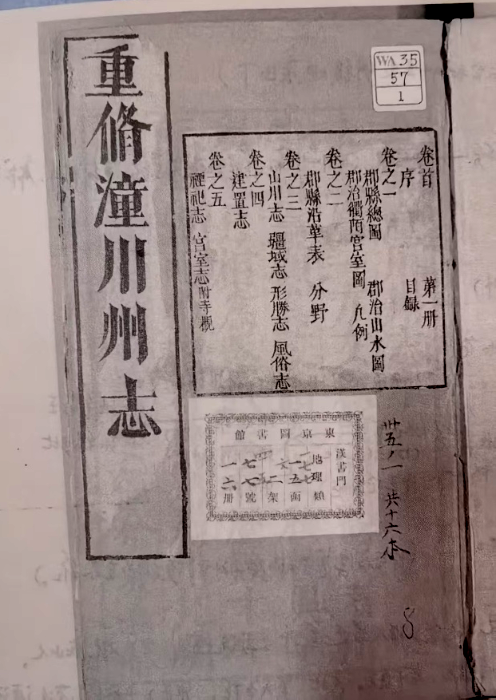 重脩潼川州志
WA35
57
1
卷首 第一册
序 目録
卷之一
郡縣總圖 郡治山水圖
郡治衙署宮室圖 凡例
卷之二
郡縣沿革表 分野
卷之三
山川志 疆域志 形勝志 風俗志
卷之四
建置志
卷之五
禋祀志 宮室志附寺觀
東京圖書館
漢書門
地理類
一五函
二架
七七號
一六册
卅五ノ一 共十六本
8